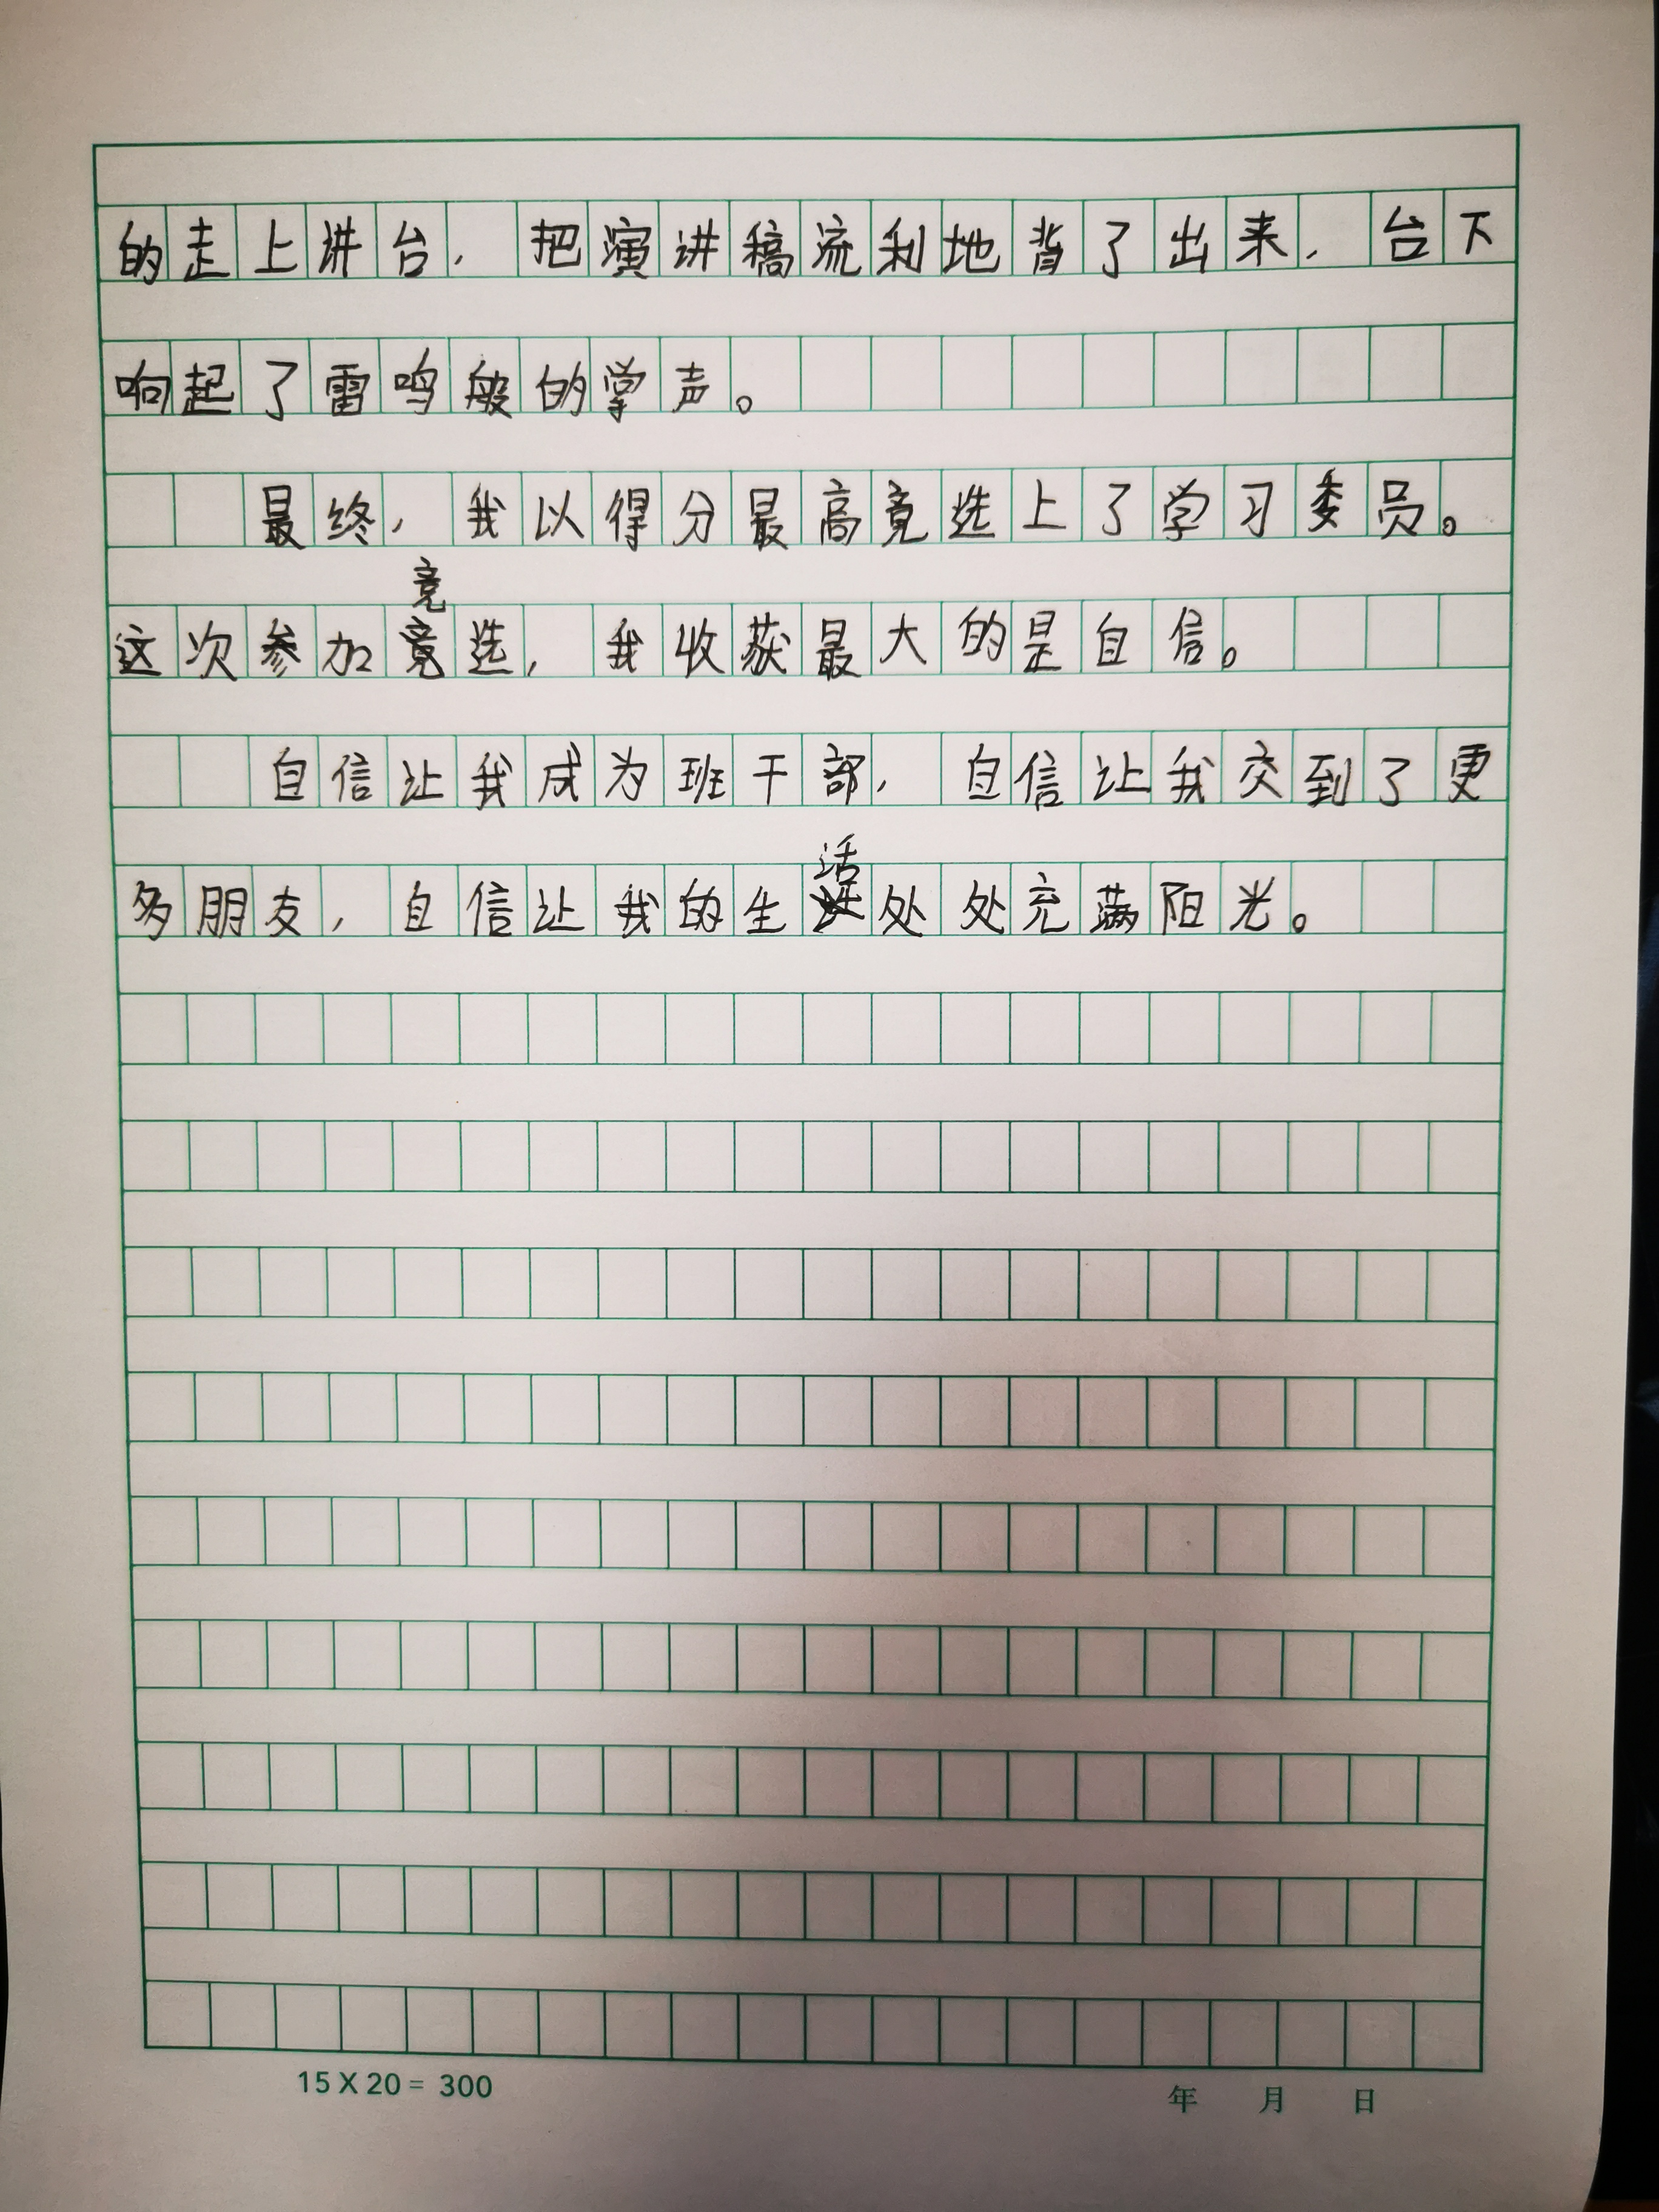 的走上讲台，把演讲稿流利地背了出来，台下
响起了雷鸣般的掌声。
最终，我以得分最高竞选上了学习委员。
竞
这次参加竞选，我收获最大的是自信。
自信让我成为班干部，自信让我交到了更
话
多朋友，自信让我的生处处充满阳光。
15X20=300
年 月 日